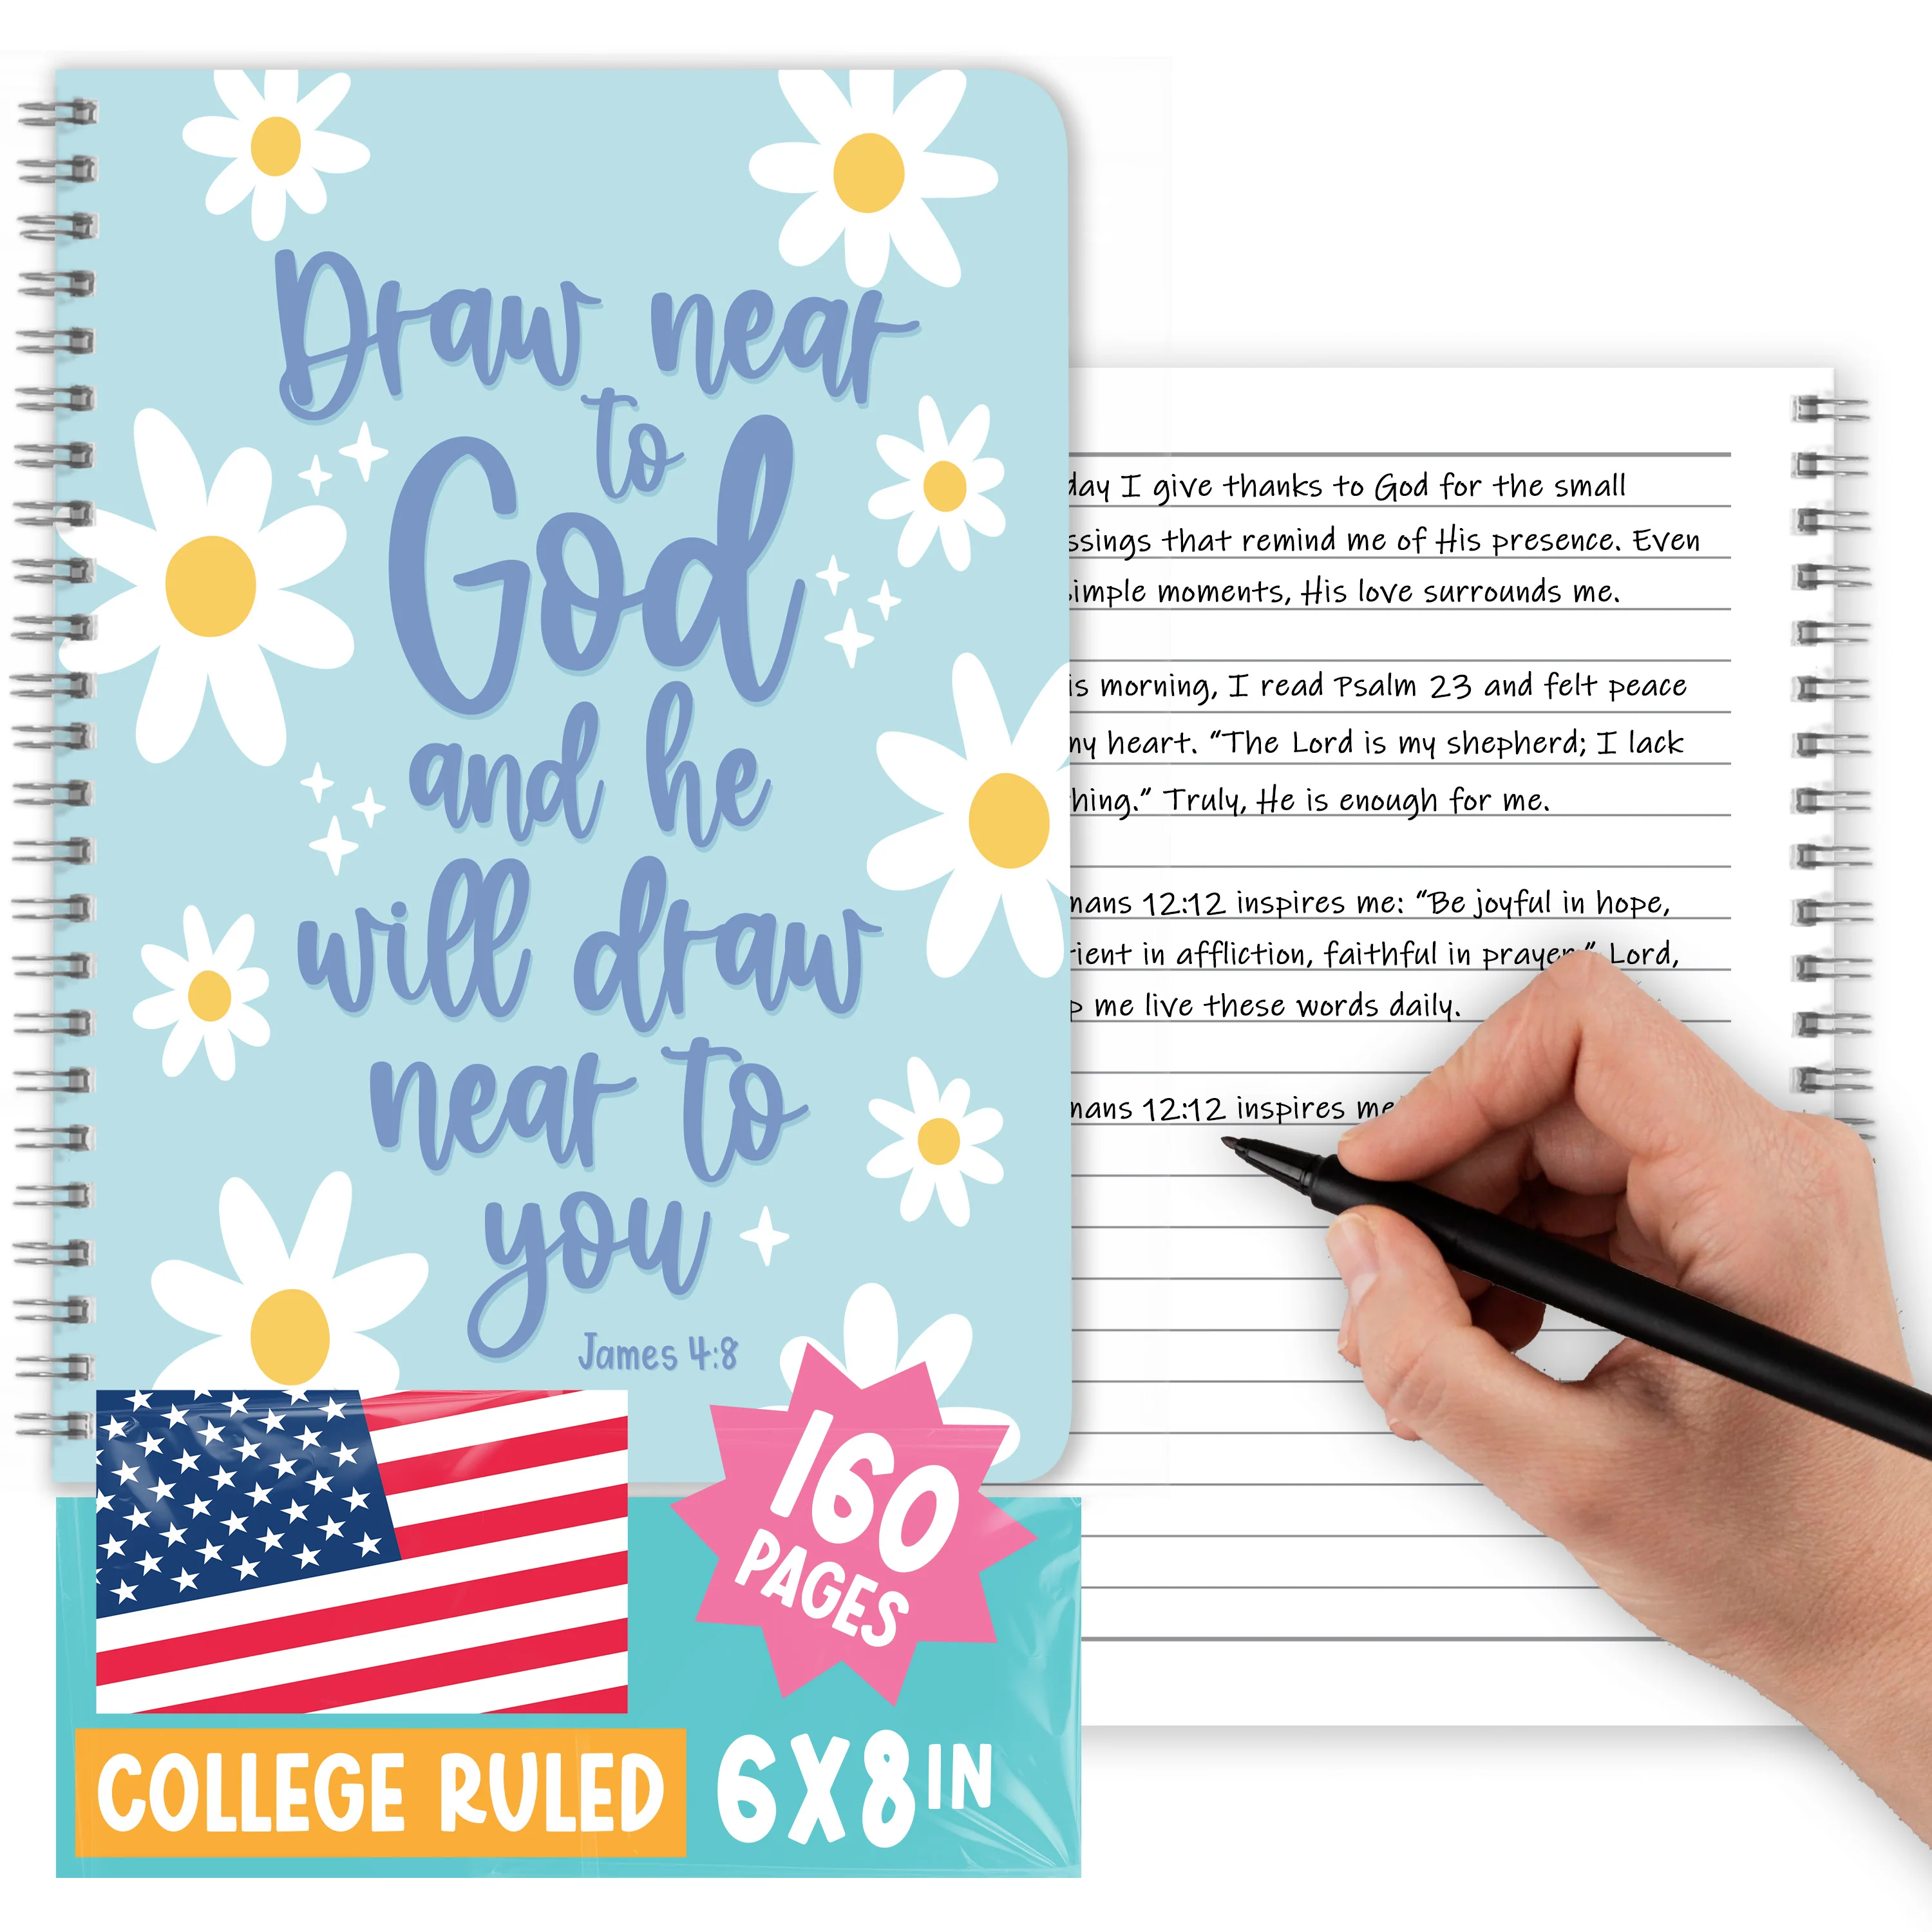 Draw near
to
God
and he
will draw
near to
you
James 4:8
160
PAGES
COLLEGE RULED
6X8 IN
day I give thanks to God for the small
ssings that remind me of His presence. Even
simple moments, His love surrounds me.
is morning, I read Psalm 23 and felt peace
my heart. “The Lord is my shepherd; I lack
hing.” Truly, He is enough for me.
mans 12:12 inspires me: “Be joyful in hope,
tient in affliction, faithful in prayer.” Lord,
p me live these words daily.
mans 12:12 inspires me